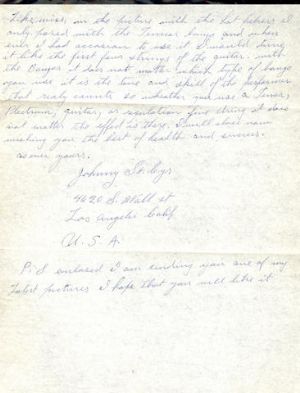 Likewise, in the picture with the Hot Peppers I
only posed with the Tenor banjo and when
ever I had occasion to use it I would tune
it like the first four strings of the guitar. with
the Banjo it does not matter which type of banjo
you use it is the tone and skill of the performer
that realy counts so wheather you use a Tenor,
Plectrum, guitar, or five string it does
not matter the effect is there. I will close now
wishing you the best of health and success.
yours.
Johnny St. Cyr
4020 S. Wall st
Los Angeles Calif
U. S. A.
P.S enclosed I am sending you one of my
latest pictures I hope that you will like it